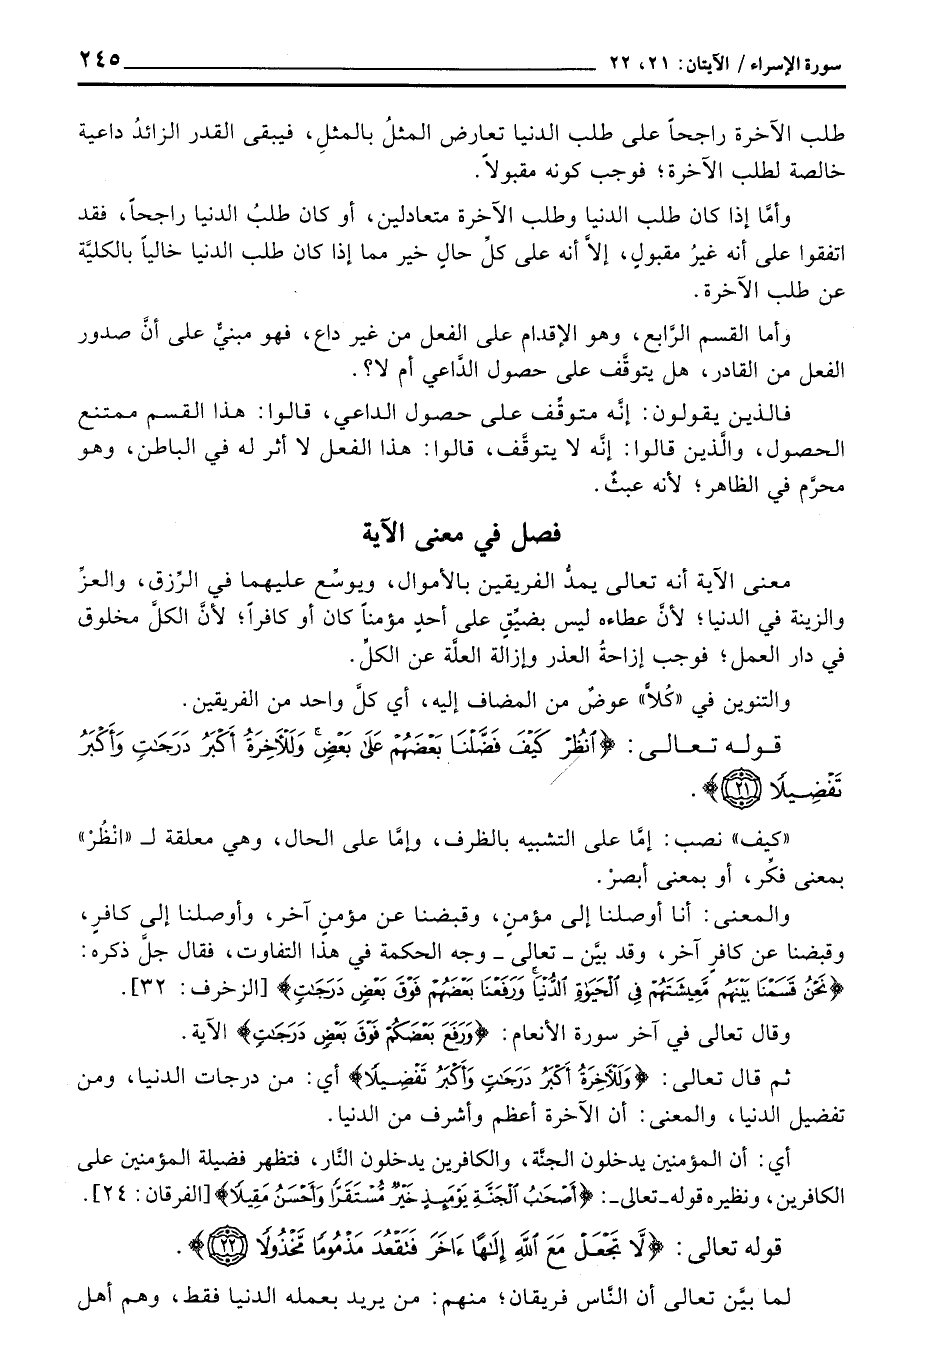 سورة الإسراء / الآيتان: ٢١، ٢٢ ٢٤٥
طلب الآخرة راجحاً على طلب الدنيا تعارض المثلُ بالمثلِ، فيبقى القدر الزائدُ داعية
خالصة لطلب الآخرة؛ فوجب كونه مقبولاً.
وأمَّا إذا كان طلب الدنيا وطلب الآخرة متعادلين، أو كان طلبُ الدنيا راجحاً، فقد
اتفقوا على أنه غيرُ مقبولٍ، إلاَّ أنه على كلِّ حالٍ خير مما إذا كان طلب الدنيا خالياً بالكليَّة
عن طلب الآخرة.
وأما القسم الرَّابع، وهو الإقدام على الفعل من غير داع، فهو مبنيٌّ على أنَّ صدور
الفعل من القادر، هل يتوقَّف على حصول الدَّاعي أم لا؟.
فالذين يقولون: إنَّه متوقِّف على حصول الداعي، قالوا: هذا القسم ممتنع
الحصول، والَّذين قالوا: إنَّه لا يتوقَّف، قالوا: هذا الفعل لا أثر له في الباطن، وهو
محرَّم في الظاهر؛ لأنه عبثٌ.
فصل في معنى الآية
معنى الآية أنه تعالى يمدُّ الفريقين بالأموال، ويوسِّع عليهما في الرِّزق، والعزِّ
والزينة في الدنيا؛ لأنَّ عطاءه ليس بضيِّقٍ على أحدٍ مؤمناً كان أو كافراً؛ لأنَّ الكلَّ مخلوق
في دار العمل؛ فوجب إزاحةُ العذر وإزالة العلَّة عن الكلِّ.
والتنوين في «كُلاًّ» عوضٌ من المضاف إليه، أي كلَّ واحد من الفريقين.
قوله تعالى: ﴿ٱنْظُرْ كَيْفَ فَضَّلْنَا بَعْضَهُمْ عَلَىٰ بَعْضٍ ۚ وَلَلْآخِرَةُ أَكْبَرُ دَرَجَٰتٍ وَأَكْبَرُ
تَفْضِيلًا ٢١﴾.
«كيف» نصب: إمَّا على التشبيه بالظرف، وإمَّا على الحال، وهي معلقة لـ «انْظُرْ»
بمعنى فكِّر، أو بمعنى أبصرْ.
والمعنى: أنا أوصلنا إلى مؤمنٍ، وقبضنا عن مؤمنٍ آخر، وأوصلنا إلى كافرٍ،
وقبضنا عن كافرٍ آخر، وقد بيَّن ـ تعالى ـ وجه الحكمة في هذا التفاوت، فقال جلَّ ذكره:
﴿نَحْنُ قَسَمْنَا بَيْنَهُم مَّعِيشَتَهُمْ فِي ٱلْحَيَوٰةِ ٱلدُّنْيَا ۚ وَرَفَعْنَا بَعْضَهُمْ فَوْقَ بَعْضٍ دَرَجَٰتٍ﴾ [الزخرف: ٣٢].
وقال تعالى في آخر سورة الأنعام: ﴿وَرَفَعَ بَعْضَكُمْ فَوْقَ بَعْضٍ دَرَجَٰتٍ﴾ الآية.
ثم قال تعالى: ﴿وَلَلْآخِرَةُ أَكْبَرُ دَرَجَٰتٍ وَأَكْبَرُ تَفْضِيلًا﴾ أي: من درجات الدنيا، ومن
تفضيل الدنيا، والمعنى: أن الآخرة أعظم وأشرف من الدنيا.
أي: أن المؤمنين يدخلون الجنَّة، والكافرين يدخلون النَّار، فتظهر فضيلة المؤمنين على
الكافرين، ونظيره قوله ـ تعالى ـ: ﴿أَصْحَٰبُ ٱلْجَنَّةِ يَوْمَئِذٍ خَيْرٌ مُّسْتَقَرًّا وَأَحْسَنُ مَقِيلًا﴾ [الفرقان: ٢٤].
قوله تعالى: ﴿لَّا تَجْعَلْ مَعَ ٱللَّهِ إِلَٰهًا ءَاخَرَ فَتَقْعُدَ مَذْمُومًا مَّخْذُولًا ٢٢﴾.
لما بيَّن تعالى أن النَّاس فريقان؛ منهم: من يريد بعمله الدنيا فقط، وهم أهل